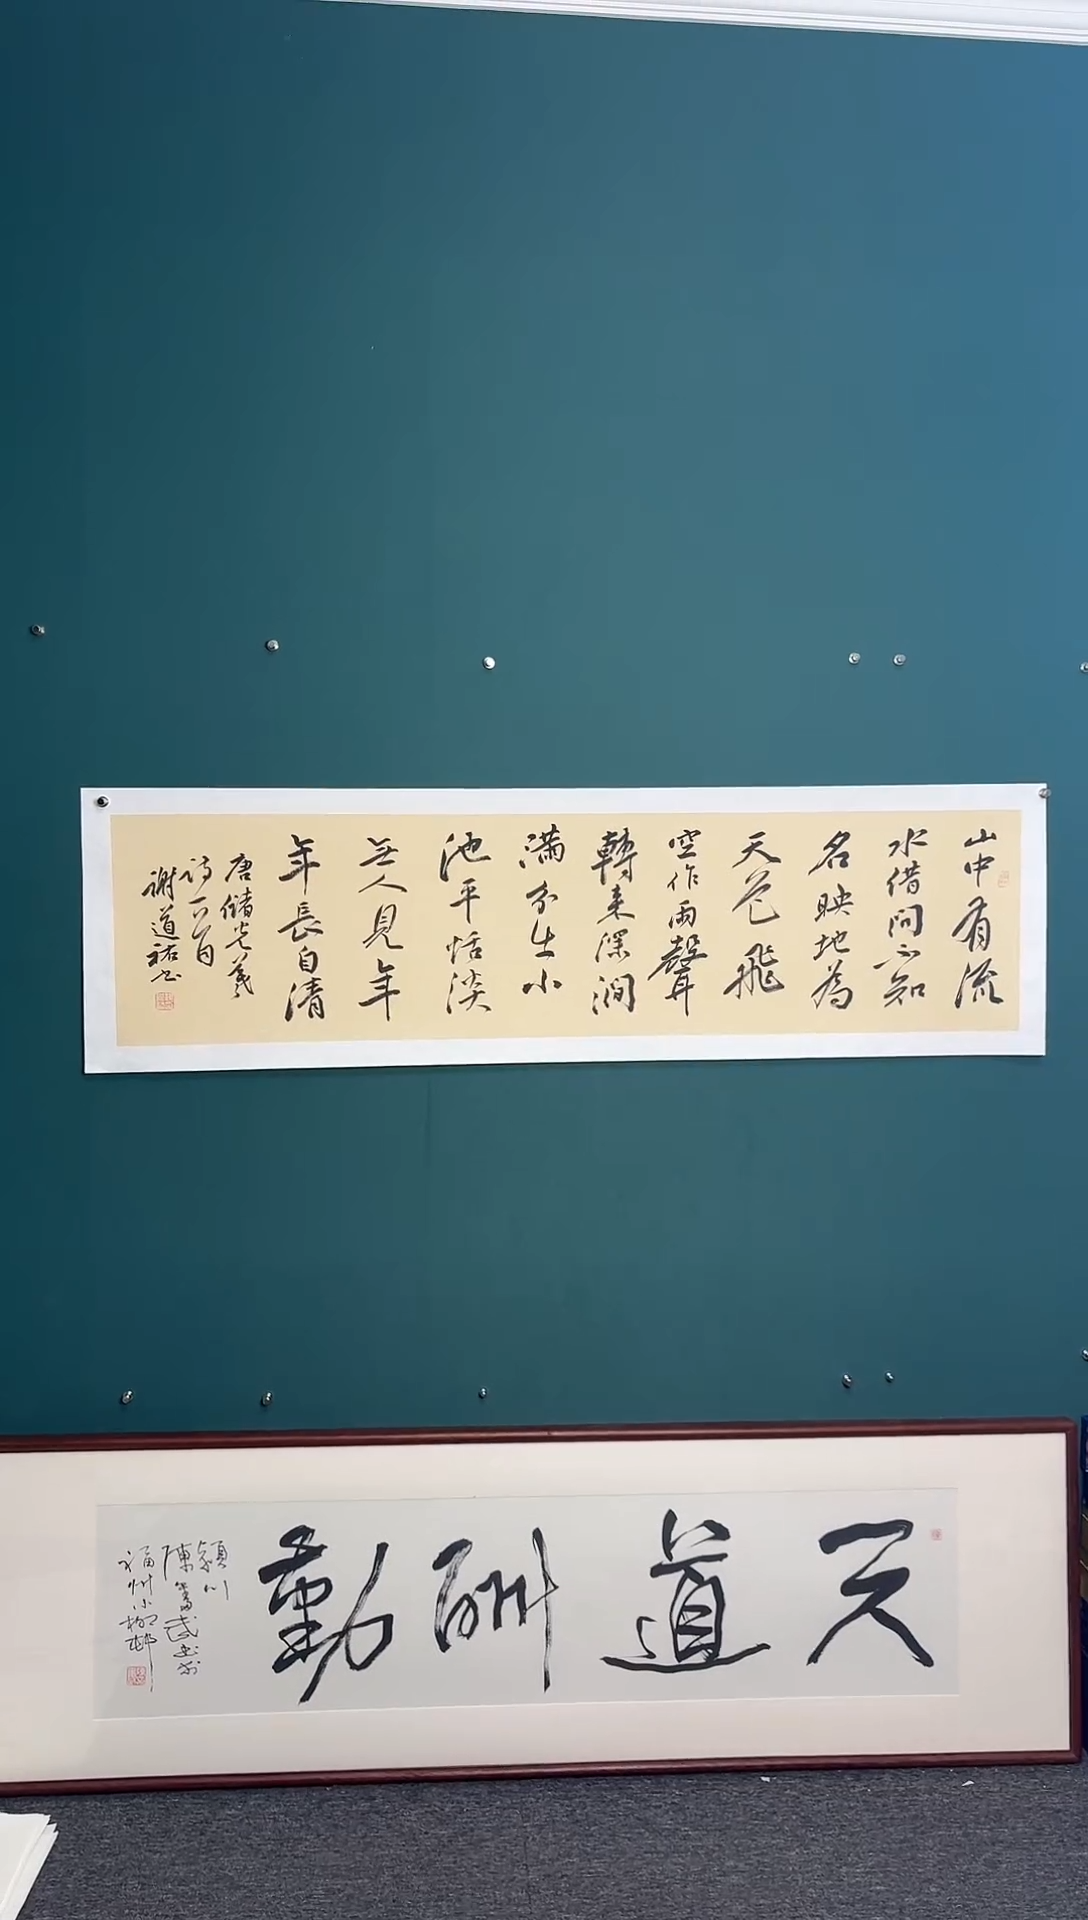 山中有流
水借问不知
名映地為
天色飛
空作雨聲
轉来深澗
满分出小
池平恬淡
無人見年
年長自清
唐儲光羲
詩一首
謝道祐书
天道酬勤
穎川
陳奮武书於
福州小柳邨